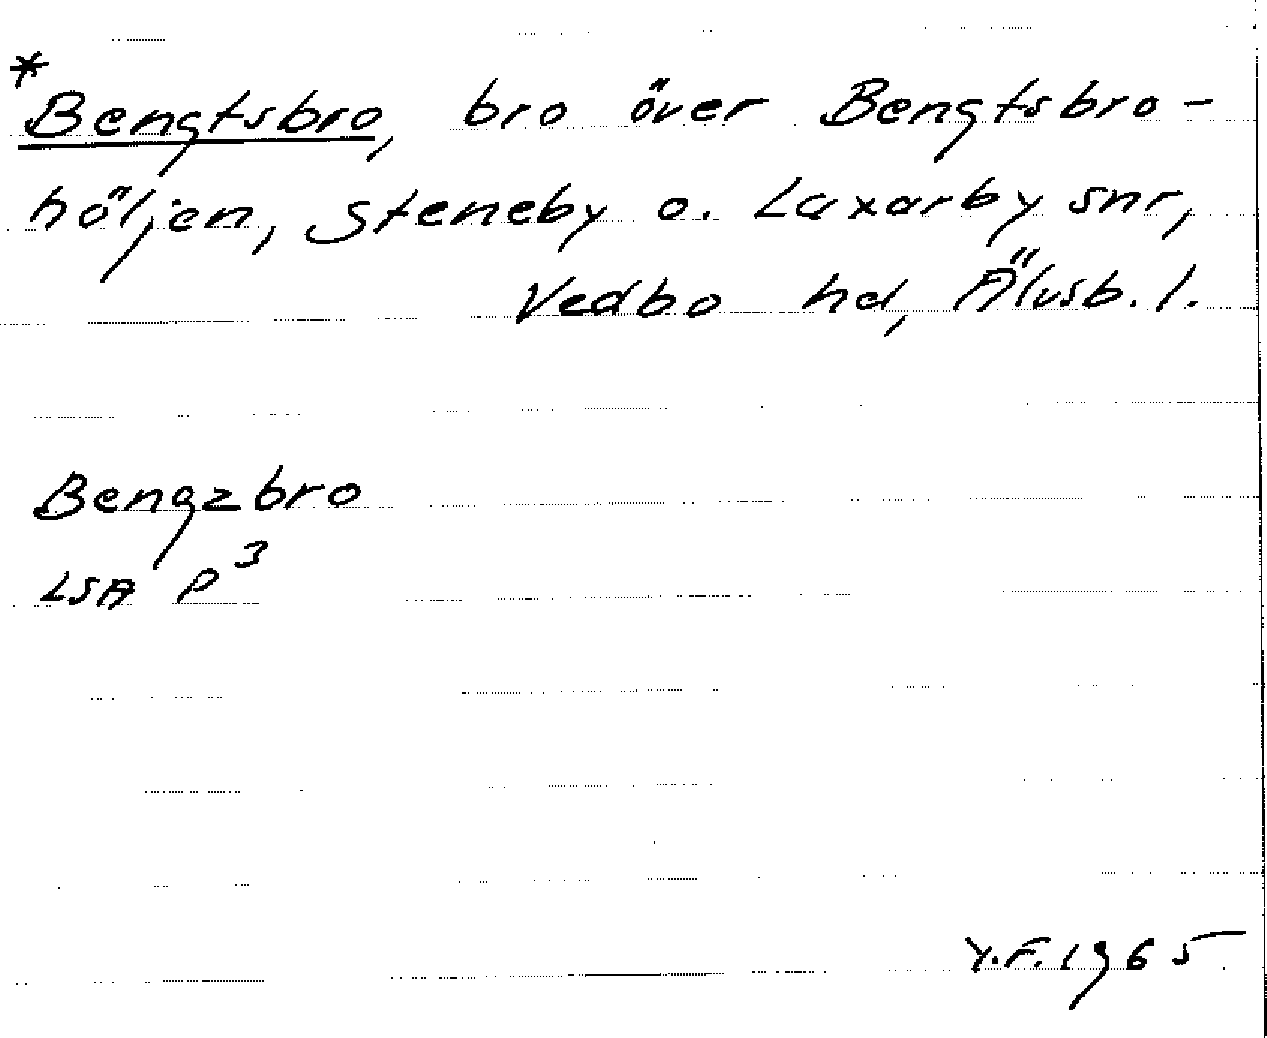 *Bengtsbro, bro över Bengtsbro-
höljen, Steneby o. Laxarby snr,
Vedbo hd, Älvsb. l.
Bengzbro
LSA P³
Y.F. 1965